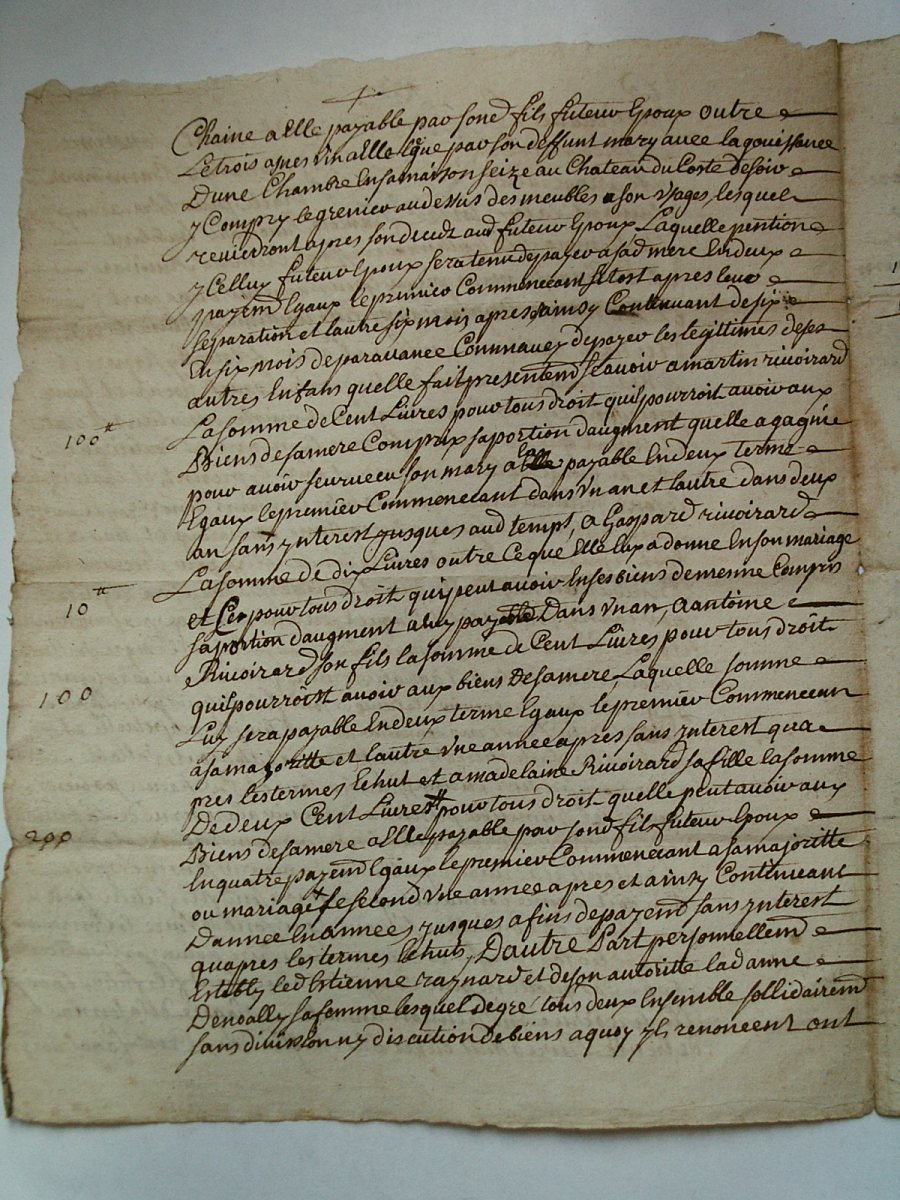 Chaine a Elle payable par sond fils futeur Epoux outre
Letrois asnes vin a Elle legue par son deffunt mary avec la gouissance
Dune Chambre En sa maison seize au Chateau du Coste desoir
y Compry le grenier au dessus des meubles a son Usages, lesquel
reviedront apres son decedz aud futeur Epoux Laquelle pention
yCelluy futeur Epoux sera tenu depayer a sad mere En deux
payemt Egaux le premier Commencant sitost apres leur
separation et lautre six mois apres, ainsy Continuant de six
En six mois deparavance Comm a vey depayer les legitimes de ses
autres Enfans quelle fait presentemt scavoir a martin rivoirard
La somme de Cent Livres pour tous droit quil pourroit avoir aux
100tt
Biens de sa mere Comprix sa portion daugment quelle a gagnée
pour avoir seurvecu son mary a payable En deux terme
Egaux le premier Commencant dans Un an et lautre dans deux
an sans ynterest jusques aud tempt, a Gaspard rivoirard
La somme de dix Livres outre Ce que Elle luy a donne En son mariage
10tt
et Ce pour tous droit qui peut avoir En ses biens de mesme Compris
sa portion daugment a luy payable Dans Un an, a antoine
Rivoirard son fils la somme de Cent Livres pour tous droit
100
quil pourroist avoir aux biens De sa mere, Laquelle somme
Luy sera payable En deux terme Egaux le premier Commencan
a sa majoritte et lautre Une annee apres sans ynterest qua
pres les termes Echut et a madelaine Rivoirard sa fille la somme
De deux Cent Livres pour tous droit quelle peut avoir aux
200
Biens de sa mere a Elle payable par sond fils futeur Epoux
En quatre payemt Egaux le premier Commencant a sa majoritte
ou mariage le second Une annee apres et ainsy Continuant
Dannee En annees jusques a fins de payemt sans ynterest
quapres les termes Echuts, Dautre Part personnellemt
Establly led Estienne raynard et de son autoritte la danne
Denoally sa femme lesquel de gre tous deux Ensemble sollidairemt
sans division ny discution de biens a quoy yls renoncent ont